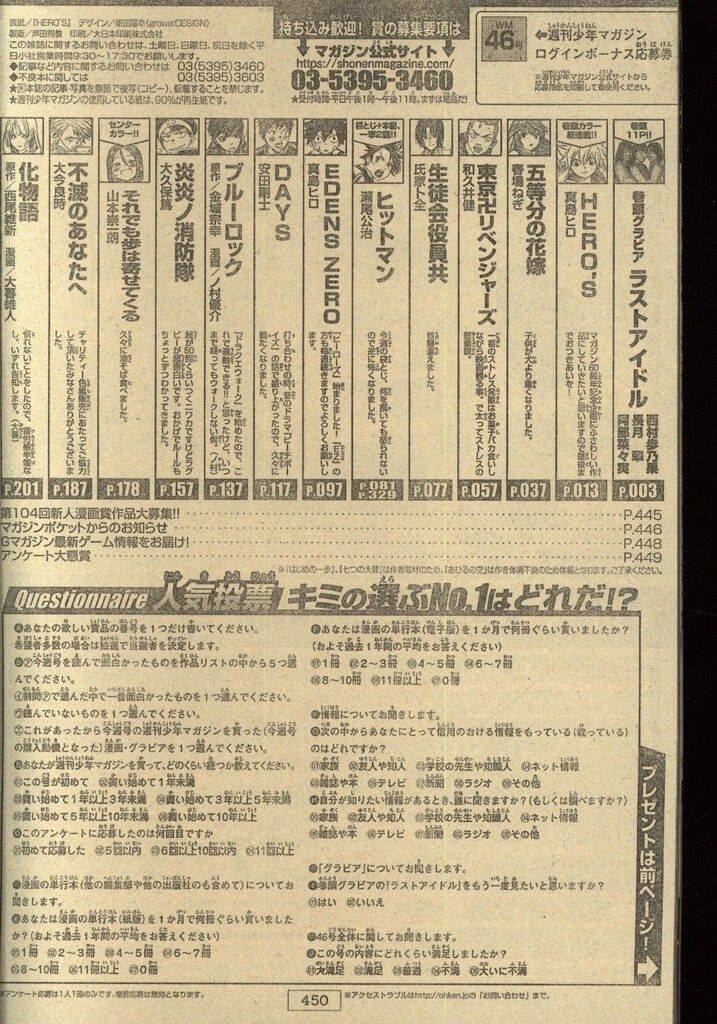 表紙／「HERO'S」 デザイン／柴田陽幸(growerDESIGN)
製版／芦田将教 印刷／大日本印刷株式会社
この雑誌に関するお問い合わせは、土曜日、日曜日、祝日を除く平
日小社営業時間9:30～17:30でお願いします。
●記事など内容に関するお問い合わせは 03(5395)3460
●不良本に関しては 03(5395)3603
★本誌の記事・写真を無断で複写(コピー)、転載することを禁じます。
★週刊少年マガジンの使用している紙は、90%が再生紙です。
持ち込み歓迎！賞の募集要項は
マガジン公式サイト
https://shonenmagazine.com/
03-5395-3460
★受付時間・平日午後1時～午後11時。まずは電話だ!
WM
46号
⇦週刊少年マガジン
ログインボーナス応募券
※週刊少年マガジン公式サイトから
応募用紙を印刷して御使用ください。
巻頭
11P!!
巻頭グラビア ラストアイドル
西村歩乃果
長月翠
阿部菜々実
P.003
巻頭カラー
新連載!!
HERO'S
真島ヒロ
マガジン60周年記念企画にふさわしい作
品にしていきたいと思いますので最後ま
でおつきあいを!
P.013
五等分の花嫁
春場ねぎ
子供が犬より重くなりました。
P.037
東京卍リベンジャーズ
和久井健
一番のストレス発散はお菓子バカ食いし
ながら映画観る事。で太ってストレスの
悪循環。
P.057
生徒会役員共
氏家ト全
首寝違えました。
P.077
袋とじ+本編、
一挙2話!!
ヒットマン
瀬尾公治
今週の袋とじ、何を描いても怒られない
ので逆に怖くなりました。
P.081
P.329
EDENS ZERO
真島ヒロ
「ヒーローズ」始まりました! 「EZ」の
方も毎週続きますのでよろしくお願いし
ます。
P.097
DAYS
安田剛士
打ち合わせの時、昔のドラマ「ビーチボー
イズ」の話で盛り上がったので、久々に
観たくなりました。
P.117
ブルーロック
原作／金城宗幸 漫画／ノ村優介
「ドラクエウォーク」を始めたので、こ
れで運動できる!!と思ったけど、いつ
まで経ってもウォークしない件。(ノ村)
P.137
炎炎ノ消防隊
大久保篤
超が50個くらいつくニワカですけどラグ
ビーが超面白いです。おかげでルールも
ちょっとずつわかってきました。
P.157
センター
カラー!!
それでも歩は寄せてくる
山本崇一朗
久々に油そば食べました。
P.178
不滅のあなたへ
大今良時
チャリティー色紙販売にあたってご協力
して頂いたみなさんありがとうございま
した。
P.187
化物語
原作／西尾維新 漫画／大暮維人
慣れないことをしたので、疲労感半端な
し。いずれ告知します。(大暮)
P.201
第104回新人漫画賞作品大募集!! P.445
マガジンポケットからのお知らせ P.446
Gマガジン最新ゲーム情報をお届け! P.448
アンケート大懸賞 P.449
※「はじめの一歩」、「七つの大罪」は作者取材のため、「あひるの空」は作者体調不良のため休載となります。ご了承ください。
Questionnaire 人気投票 キミの選ぶNo.1はどれだ!?
Ⓐあなたの欲しい賞品の番号を1つだけ書いてください。
希望者多数の場合は抽選で当選者を決定します。
Ⓑ㋐今週号を読んで面白かったものを作品リストの中から5つ選
んでください。
㋑前問㋐で選んだ中で一番面白かったものを1つ選んでください。
㋒読んでいないものを1つ選んでください。
㋓これがあったから今週号の週刊少年マガジンを買った(今週号
の購入動機となった)漫画・グラビアを1つ選んでください。
Ⓒあなたが週刊少年マガジンを買って、どのくらい経つか教えてください。
①この号が初めて ②買い始めて1年未満
③買い始めて1年以上3年未満 ④買い始めて3年以上5年未満
⑤買い始めて5年以上10年未満 ⑥買い始めて10年以上
Ⓓこのアンケートに応募したのは何回目ですか
①初めて応募した ②5回以内 ③6回以上10回以内 ④11回以上
○漫画の単行本(他の編集部や他の出版社のも含めて)についてお
聞きします。
Ⓔあなたは漫画の単行本(紙版)を1か月で何冊ぐらい買いました
か?(およそ過去1年間の平均をお答えください)
①1冊 ②2～3冊 ③4～5冊 ④6～7冊
⑤8～10冊 ⑥11冊以上 ⑦0冊
Ⓕあなたは漫画の単行本(電子版)を1か月で何冊ぐらい買いましたか?
(およそ過去1年間の平均をお答えください)
①1冊 ②2～3冊 ③4～5冊 ④6～7冊
⑤8～10冊 ⑥11冊以上 ⑦0冊
○情報についてお聞きします。
Ⓖ次の中からあなたにとって信用のおける情報をもっている(載っている)
のはどれですか?
①家族 ②友人や知人 ③学校の先生や知識人 ④ネット情報
⑤雑誌や本 ⑥テレビ ⑦新聞 ⑧ラジオ ⑨その他
Ⓗ自分が知りたい情報があるとき、誰に聞きますか?(もしくは調べますか?)
①家族 ②友人や知人 ③学校の先生や知識人 ④ネット情報
⑤雑誌や本 ⑥テレビ ⑦新聞 ⑧ラジオ ⑨その他
○「グラビア」についてお聞きします。
Ⓘ巻頭グラビアの「ラストアイドル」をもう一度見たいと思いますか?
①はい ②いいえ
○46号全体に関してお聞きします。
Ⓙこの号の内容にどれくらい満足しましたか?
①大満足 ②満足 ③普通 ④不満 ⑤大いに不満
プレゼントは前ページ!
※アンケート応募は1人1通のみです。複数応募は無効となります。
450
※アクセストラブルはhttp://ohken.jpの「お問い合わせ」まで。